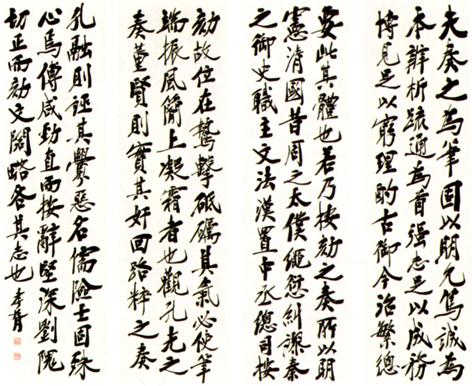 夫奏之為筆固以明允篤誠為
本辨析疏通為首強志足以成務
博見足以窮理酌古御今治繁總
要此其體也若乃按劾之奏所以明
憲清國昔周之太僕繩愆糾謬秦
之御史職主文法漢置中丞總司按
劾故位在鷙擊砥礪其氣必使筆
端振風簡上凝霜者也觀孔光之
奏董賢則實其奸回路粹之奏
孔融則誣其釁惡名儒險士固殊
心焉傅咸勁直而按辭堅深劉隗
切正而劾文闊略各其志也